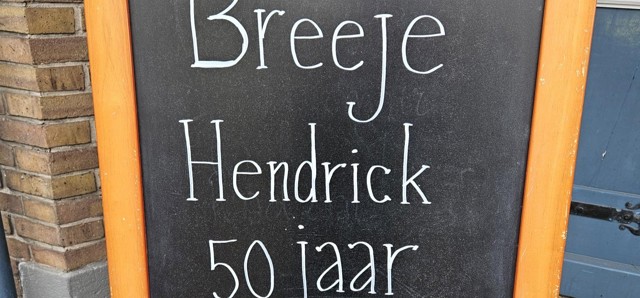 Breeje
Hendrick
50 jaar